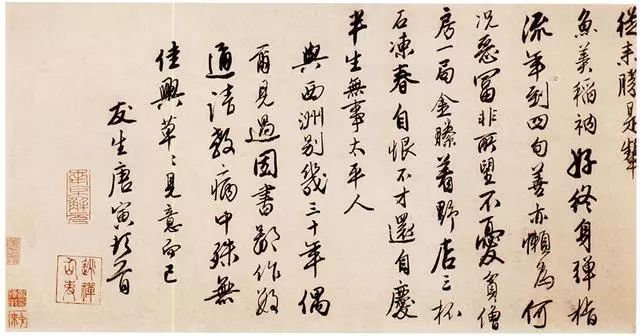 從来
魚羹稻衲好終身彈指
流年到四旬善亦懶為何
況惡富非所望不憂貧僧
房一局金縢着野店三杯
石凍春自恨不才還自慶
半生無事太平人
與西洲別幾三十年偶
爾見過因書鄙作
請教病中殊無
佳興草〻見意而已
友生唐寅頓首
南京解元
逃禪仙吏